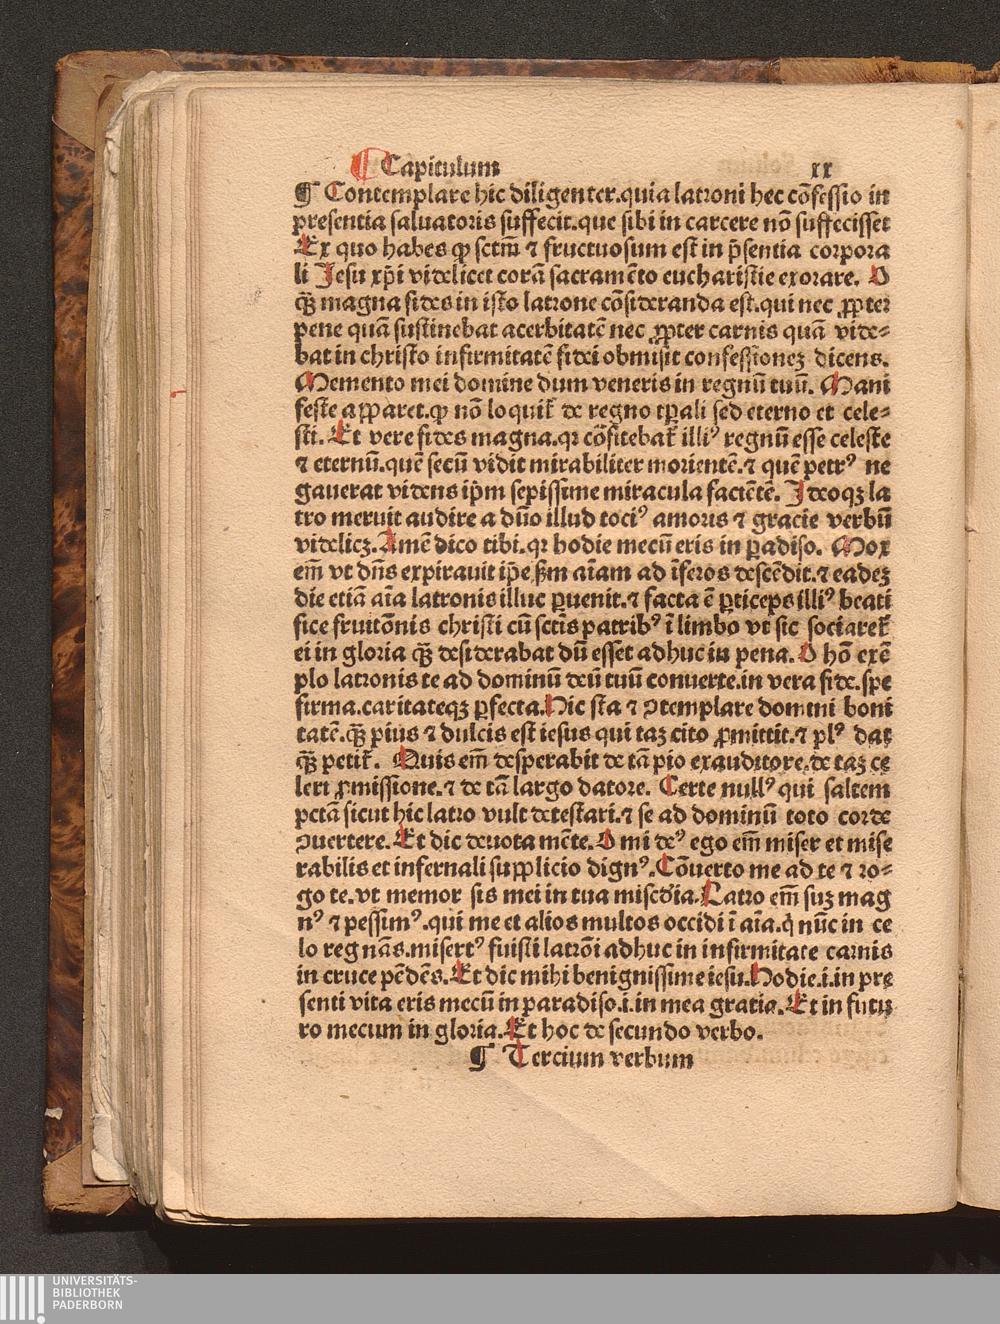 ¶ Capitulum xx
¶ Contemplare hic diligenter.quia latroni hec cōfessio in
presentia saluatoris suffecit.que sibi in carcere nō suffecisset
Ex quo habes ꝙ sctm̄ ⁊ fructuosum est in p̄sentia corpora
li Jesu xp̄i videlicet corā sacramēto eucharistie exorare. O
q̄ꝫ magna fides in isto latrone cōsideranda est.qui nec ꝓpter
pene quā sustinebat acerbitatē nec ꝓpter carnis quā vide⸗
bat in christo infirmitatē fidei obmisit confessioneꝫ dicens.
Memento mei domine dum veneris in regnū tuū. Mani
feste apparet.ꝙ nō loquit᷑ de regno tꝑali sed eterno et cele⸗
sti. Et vere fides magna.qꝛ cōfitebat᷑ illiꝰ regnū esse celeste
⁊ eternū.quē secū vidit mirabiliter morientē.⁊ quē petrꝰ ne
gauerat videns ip̄m sepissime miracula faciētē. Jdeoqꝫ la
tro meruit audire a dn̄o illud tociꝰ amoris ⁊ gracie verbū
videlicꝫ.Amē dico tibi.qꝛ hodie mecū eris in ꝑadiso. Mox
em̄ vt dn̄s expirauit ip̄e ẜm aīam ad īferos descēdit.⁊ eadeꝫ
die etiā aīa latronis illuc ꝑuenit.⁊ facta ē ꝑticeps illiꝰ beati
fice fruitōnis christi cū sctis patribꝰ ī limbo vt sic sociaret᷑
ei in gloria q̄ꝫ desiderabat dū esset adhuc in pena. O hō exē
plo latronis te ad dominū deū tuū conuerte.in vera fide.spe
firma.caritateqꝫ ꝑfecta.Hic sta ⁊ ꝯtemplare domini boni
tatē.q̄ꝫ pius ⁊ dulcis est iesus qui taꝫ cito ꝓmittit.⁊ plꝰ dat
q̄ꝫ petit᷑. Quis em̄ desperabit de tā pio exauditore.de taꝫ ce
leri ꝓmissione.⁊ de tā largo datore. Certe nullꝰ qui saltem
pctā sicut hic latro vult detestari.⁊ se ad dominū toto corde
ꝯuertere. Et dic deuota mēte. O mi deꝰ ego em̄ miser et mise
rabilis et infernali supplicio dignꝰ.Cōuerto me ad te ⁊ ro⸗
go te.vt memor sis mei in tua misc̄dia.Latro em̄ suꝫ mag
nꝰ ⁊ pessimꝰ.qui me et alios multos occidi ī aīa.q̇ nūc in ce
lo regnās.misertꝰ fuisti latrōi adhuc in infirmitate carnis
in cruce pēdēs.Et dic mihi benignissime iesu.Hodie.i.in pre
senti vita eris mecū in paradiso.i.in mea gratia. Et in futu
ro mecum in gloria.Et hoc de secundo verbo.
¶ Tercium verbum
UNIVERSITÄTS-
BIBLIOTHEK
PADERBORN